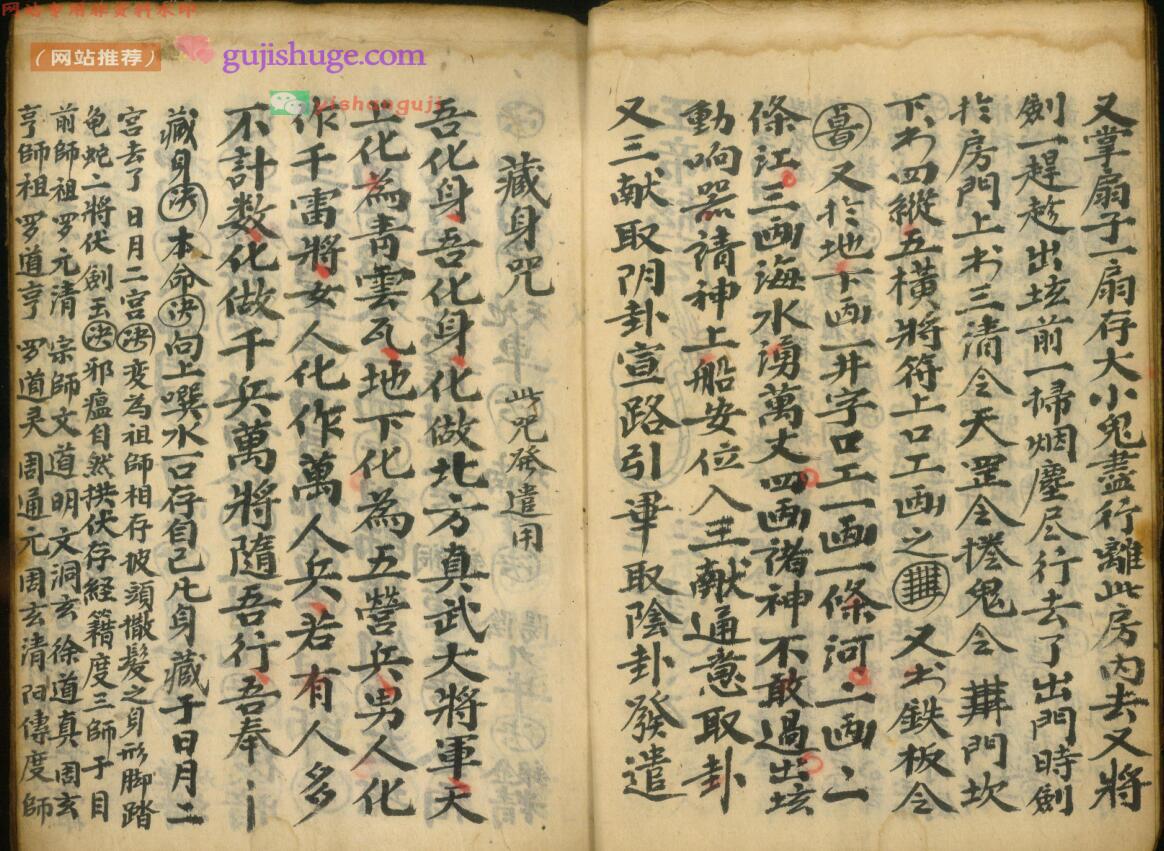 网站专用非资料水印
（网站推荐）
gujishuge.com
yishanguji
又掌扇子一扇存大小鬼盡行離此房内去又將
劍一趕趁出坛前一掃烟塵尽行去了出門時劍
於房門上书三清令天罡令捲鬼令 門坎
下书四縱五橫將符上口工画之 又书鉄板令
又於地下画一井字口工一画一條河二画二
條江三画海水湧萬丈四画諸神不敢過出坛
動响器請神上船安位入三献通意取卦
又三献取阴卦宣路引畢取陰卦發遣
藏身咒 此咒發遣用
吾化身吾化身化做北方真武大將軍天
上化為青雲瓦地下化為五營兵男人化
作千雷將女人化作萬人兵若有人多
不計數化做千兵萬將隨吾行吾奉
藏身决本命决向上噀水一口存自己凡身藏于日月二
宮去了日月二宮决变為祖師相存披頭撒髮之身形脚踏
龟蛇二將伏劍玉决邪瘟自然拱伏存経籍度三師于目
前師祖罗元清 宗師文道明文洞玄徐道真周玄
亨師祖罗道亨 罗道灵周通元周玄清阳傳度師